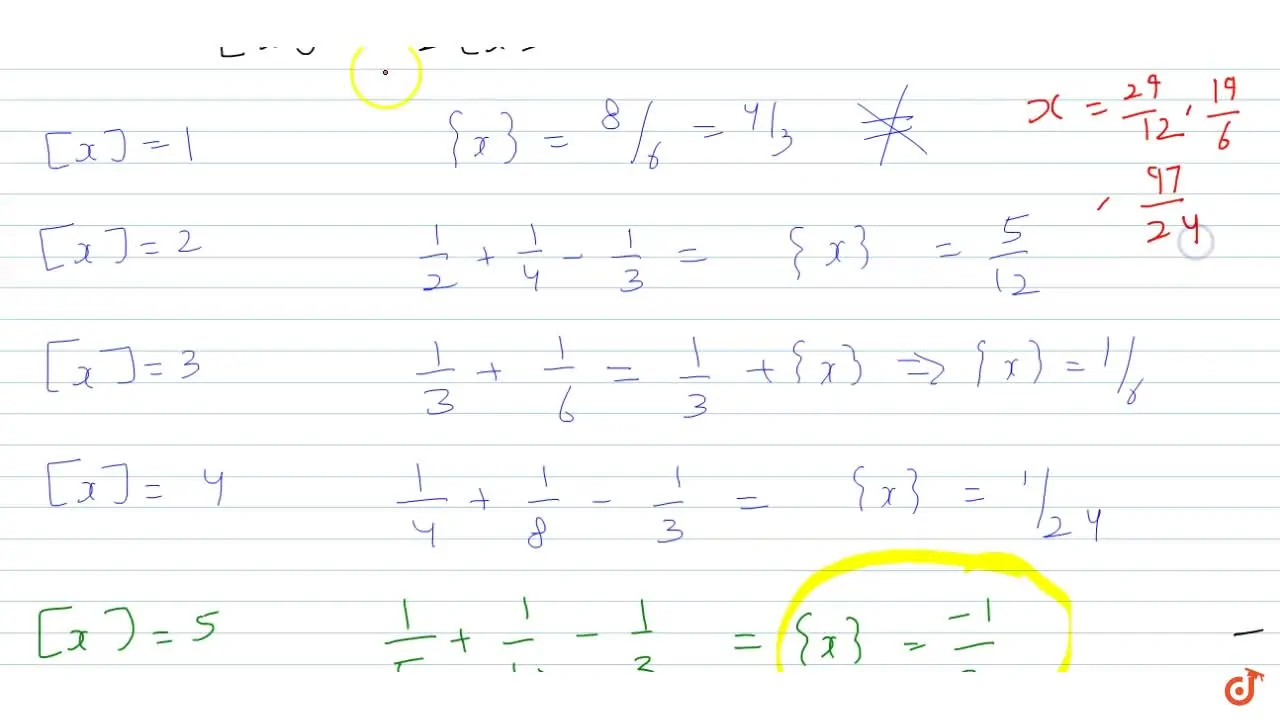 [x] = 1 {x} = 8/6 = 4/3
x = 29/12, 19/6
, 97/24
[x] = 2 1/2 + 1/4 - 1/3 = {x} = 5/12
[x] = 3 1/3 + 1/6 = 1/3 + {x} ⇒ {x} = 1/6
[x] = 4 1/4 + 1/8 - 1/3 = {x} = 1/24
[x) = 5 1/5 + 1/ - 1/3 = {x} = -1/ -